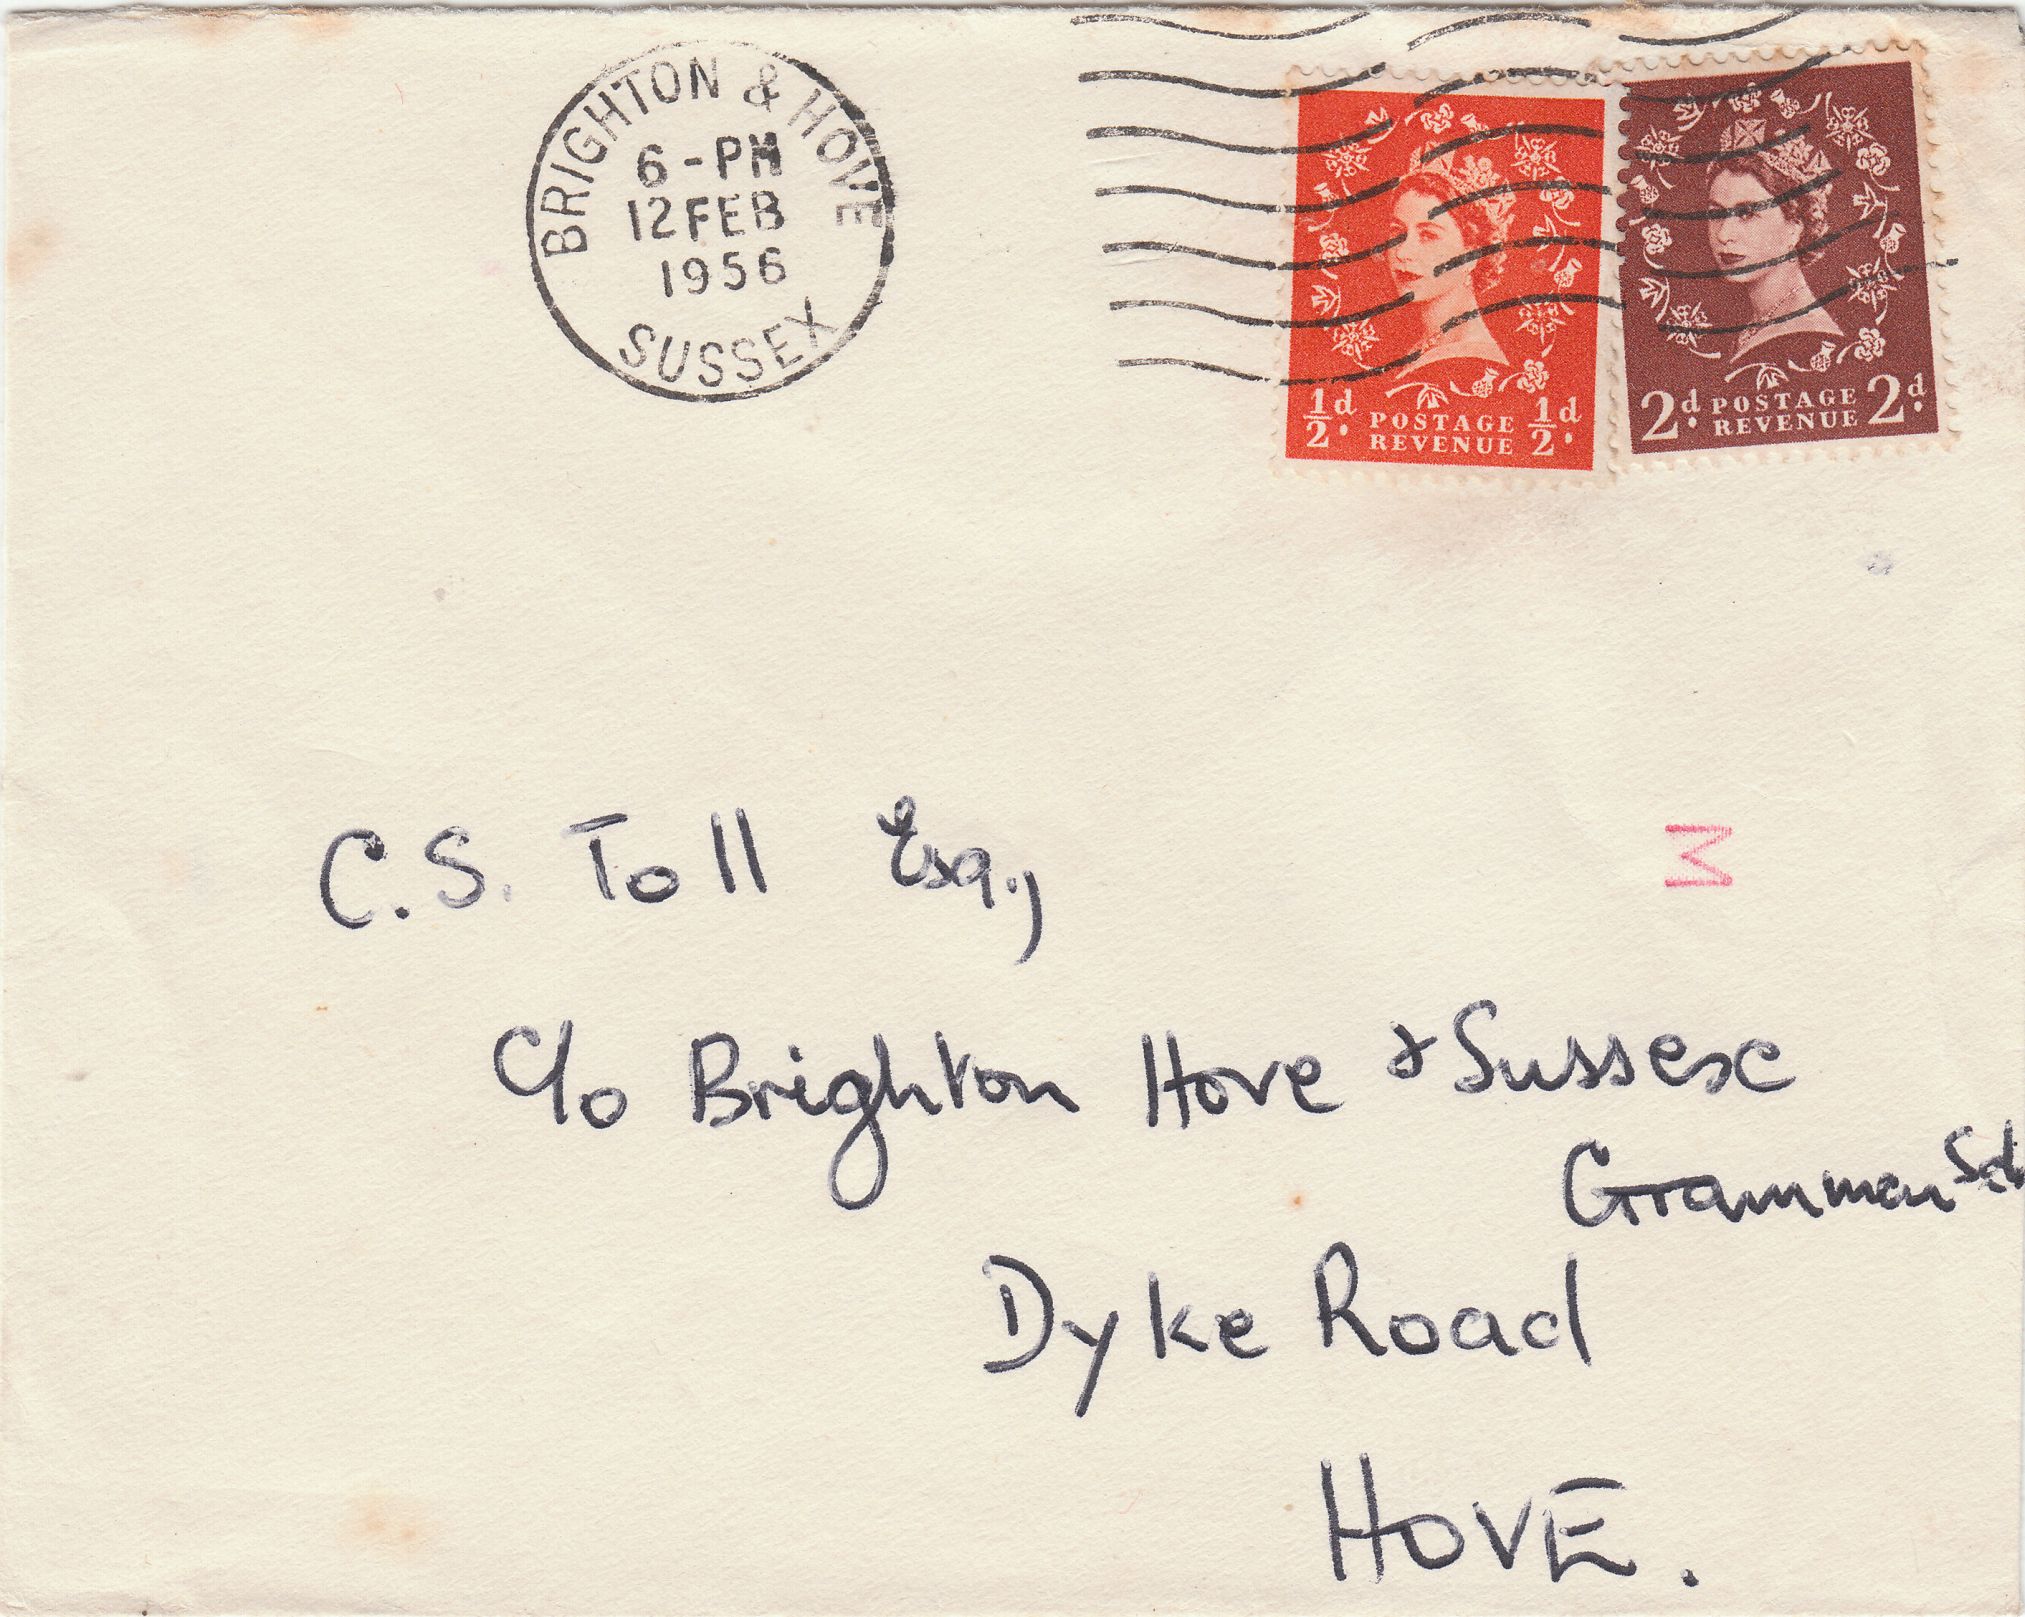 BRIGHTON & HOVE
6-PM
12 FEB
1956
SUSSEX
½d. POSTAGE REVENUE ½d.
2d. POSTAGE REVENUE 2d.
M
C.S. Toll Esq.,
c/o Brighton Hove & Sussex
Grammar Sch
Dyke Road
HOVE.